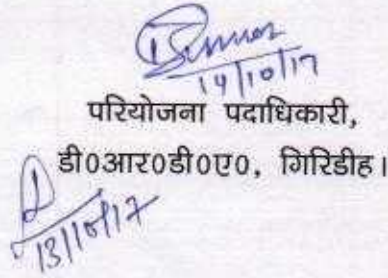 14/10/17
परियोजना पदाधिकारी,
डी0आर0डी0ए0, गिरिडीह।
13/10/17